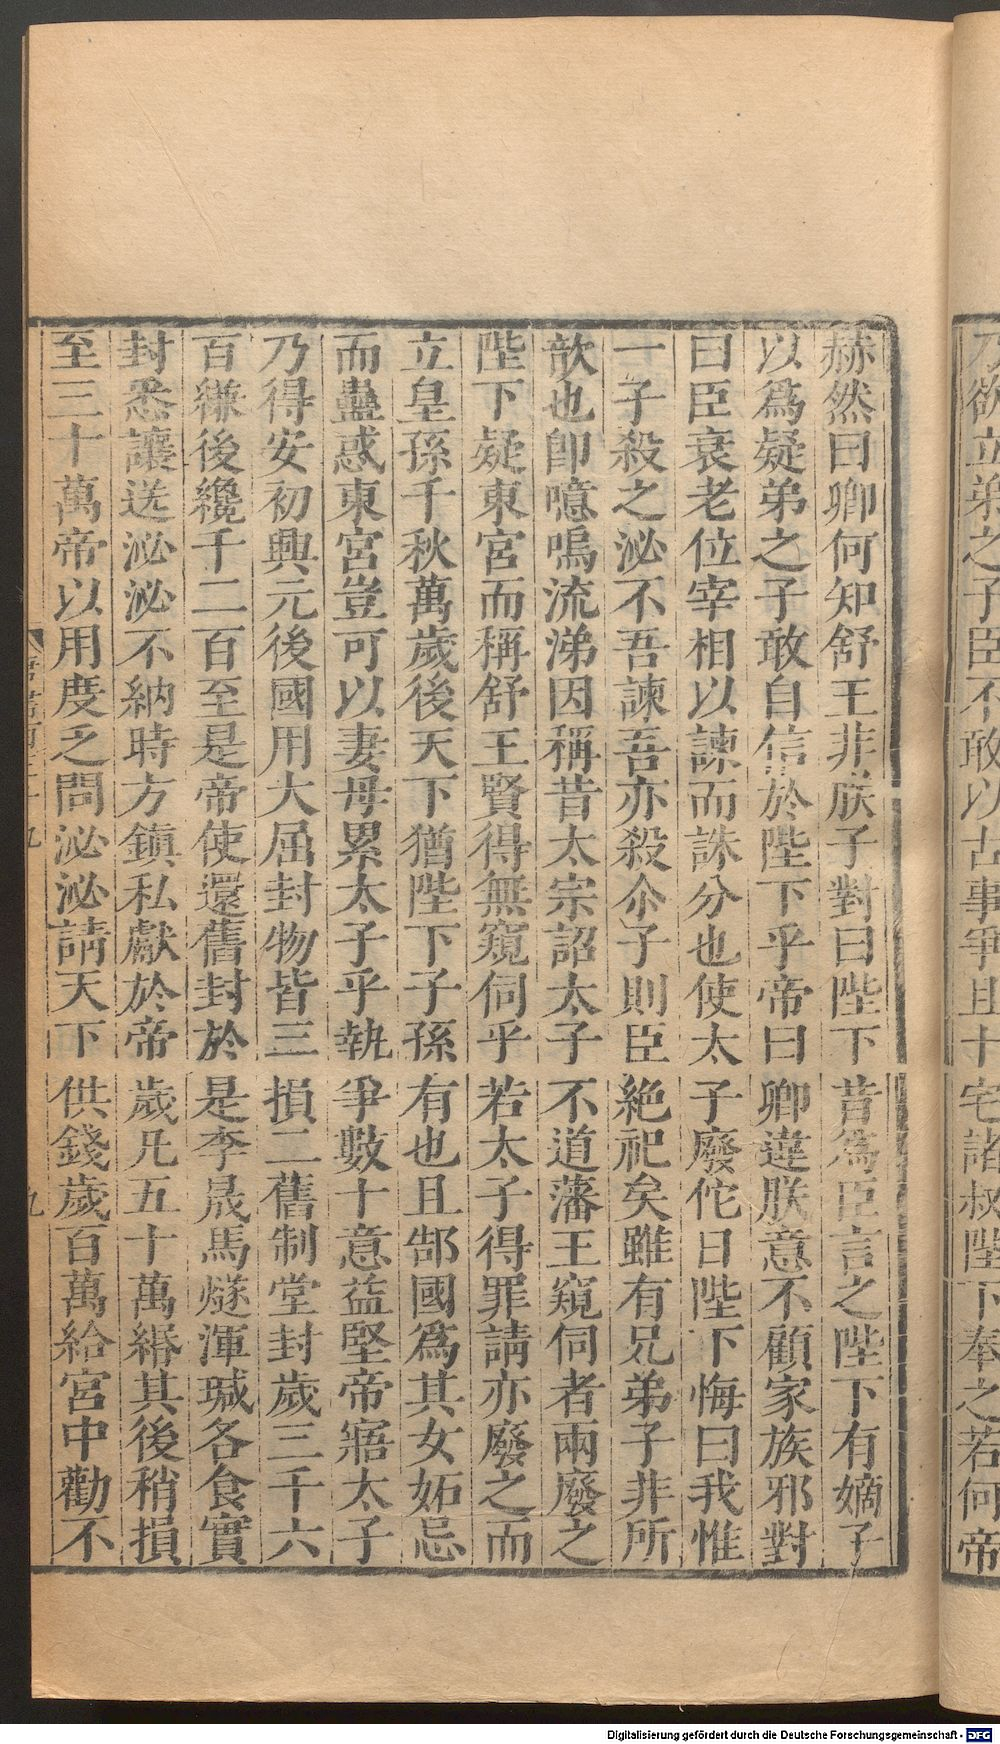 乃欲立弟之子臣不敢以古事爭且十宅諸叔陛下奉之若何帝
赫然曰卿何知舒王非朕子對曰陛下昔爲臣言之陛下有嫡子
以爲疑弟之子敢自信於陛下乎帝曰卿違朕意不顧家族邪對
曰臣衰老位宰相以諫而誅分也使太子廢佗日陛下悔曰我惟
一子殺之泌不吾諫吾亦殺尒子則臣絶祀矣雖有兄弟子非所
歆也卽噫嗚流涕因稱昔太宗詔太子不道藩王窺伺者兩廢之
陛下疑東宮而稱舒王賢得無窺伺乎若太子得罪請亦廢之而
立皇孫千秋萬歲後天下猶陛下子孫有也且郜國爲其女妬忌
而蠱惑東宮豈可以妻母累太子乎執爭數十意益堅帝寤太子
乃得安初興元後國用大屈封物皆三損二舊制堂封歲三千六
百縑後纔千二百至是帝使還舊封於是李晟馬燧渾瑊各食實
封悉讓送泌泌不納時方鎮私獻於帝歲凡五十萬緡其後稍損
至三十萬帝以用度乏問泌泌請天下供錢歲百萬給宮中勸不
九
Digitalisierung gefördert durch die Deutsche Forschungsgemeinschaft - DFG